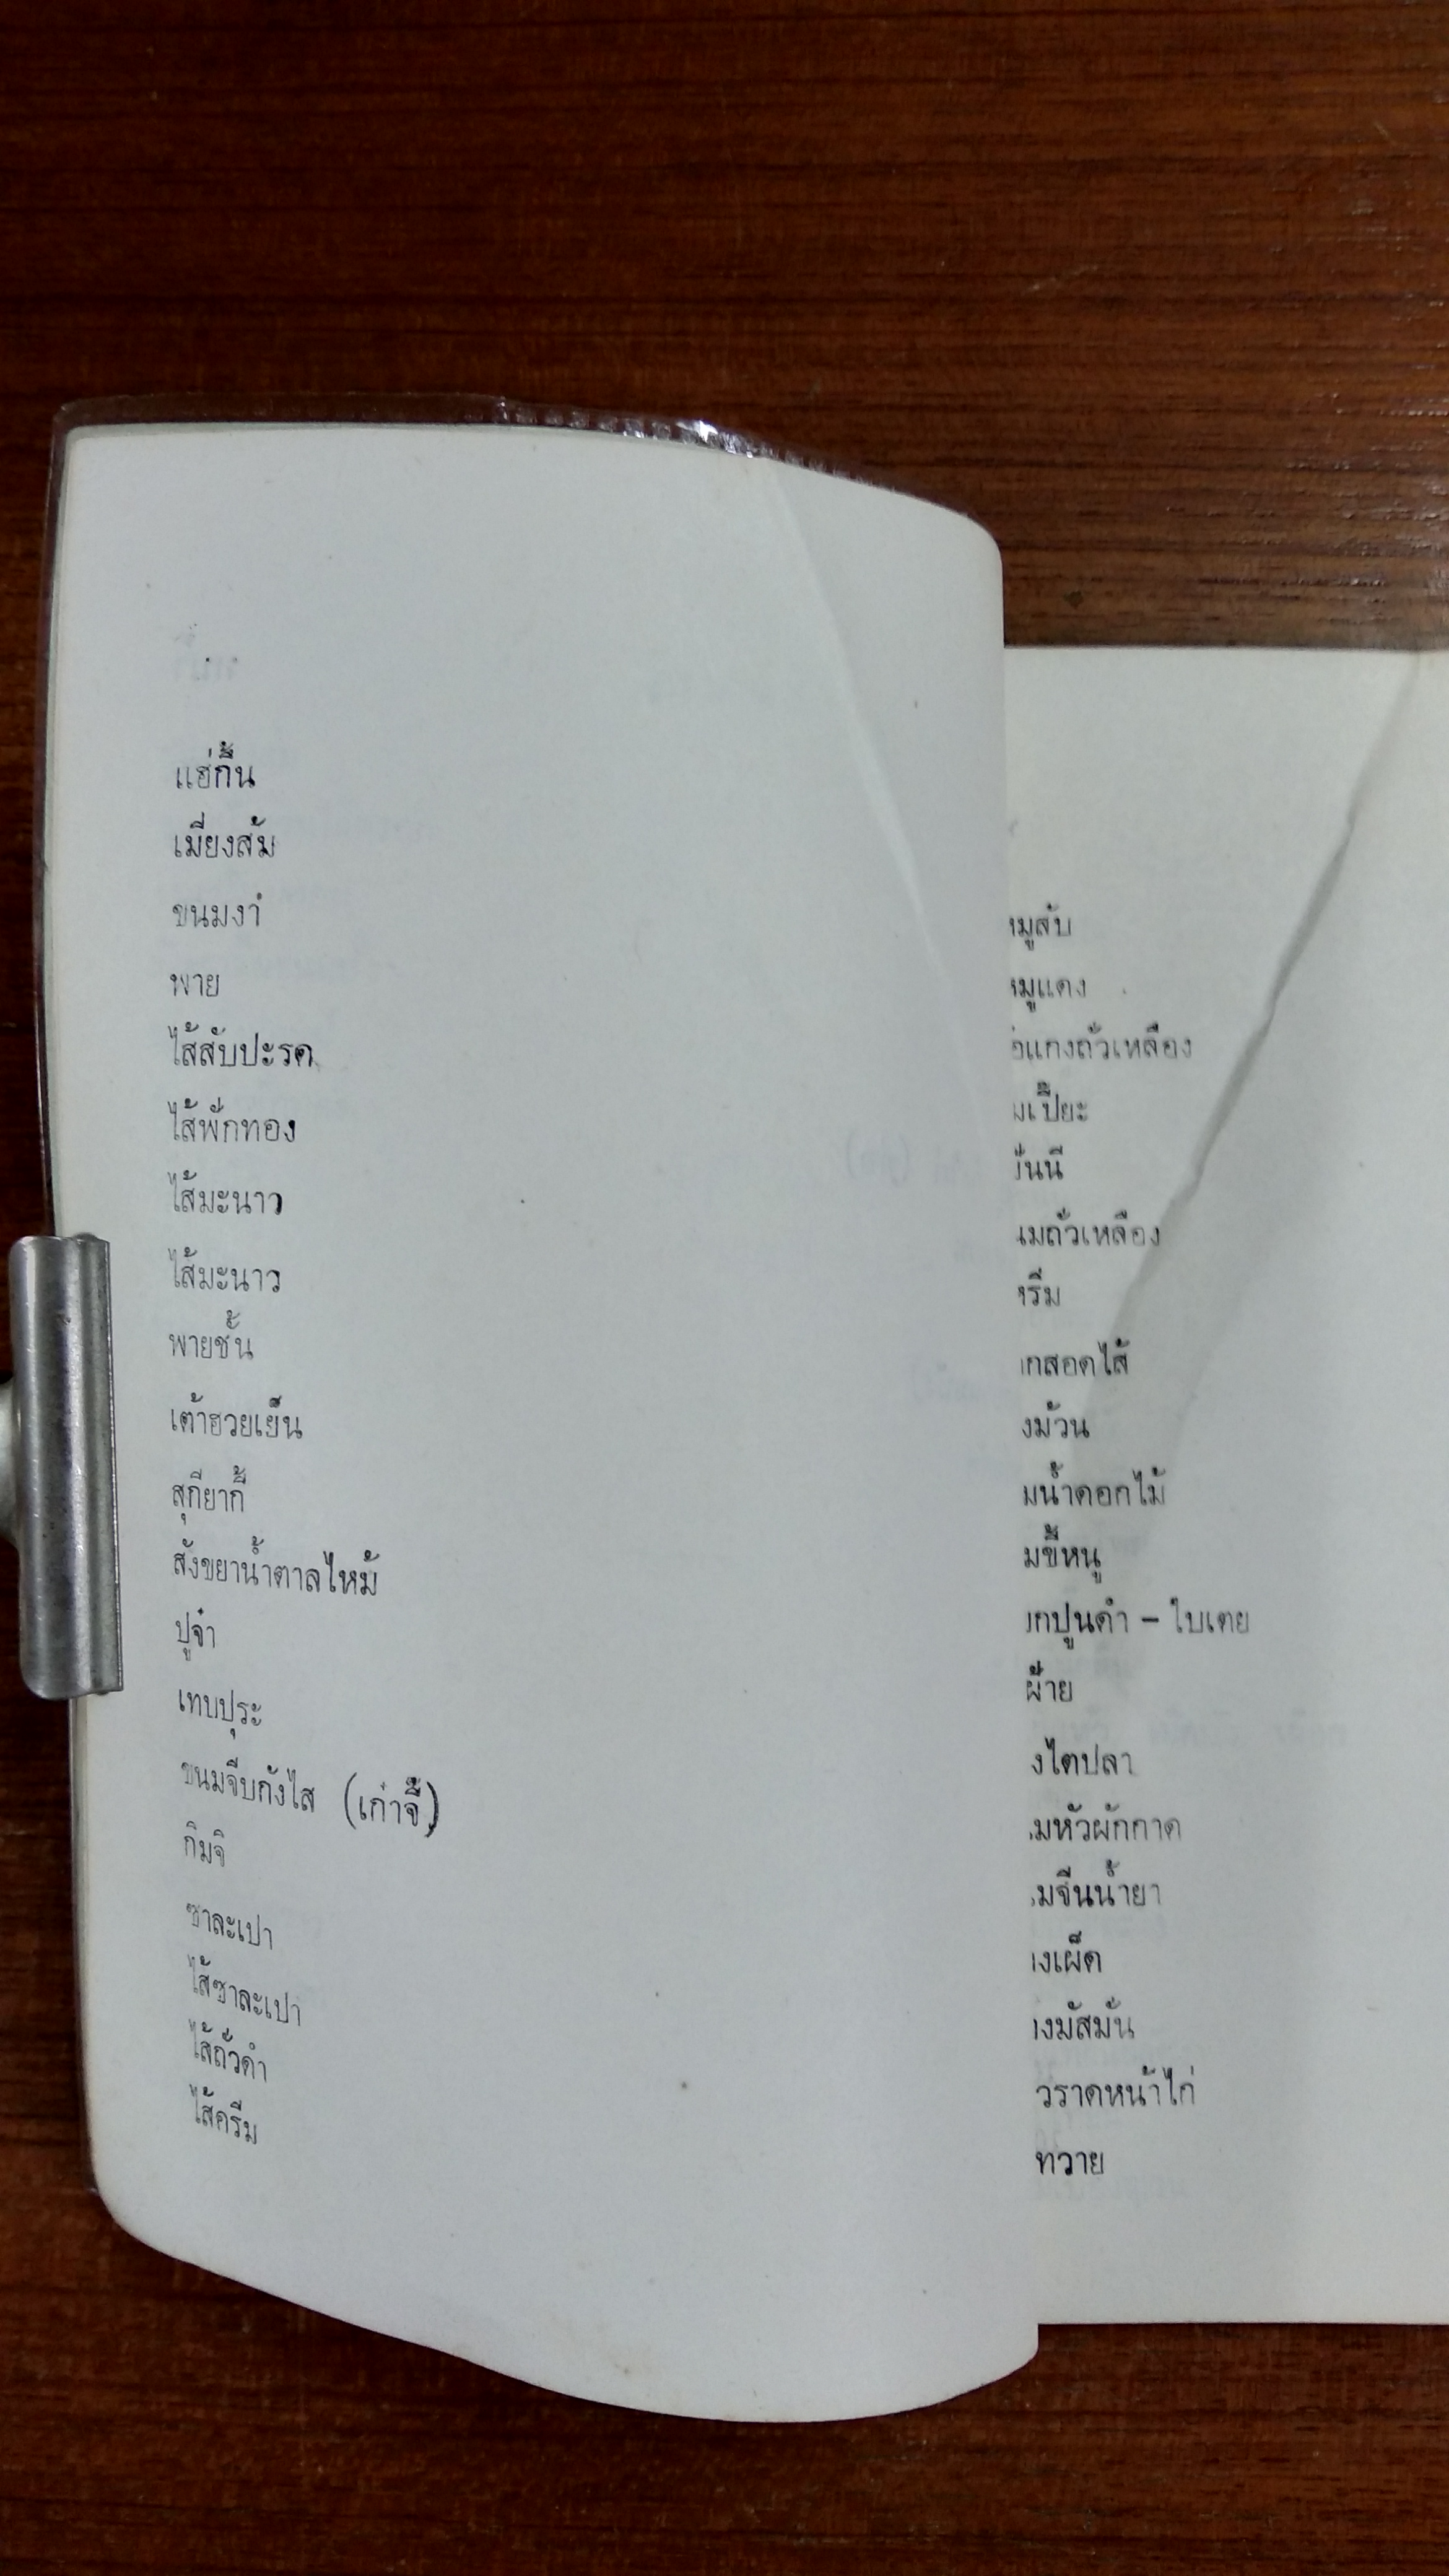 แฮ่กึ้น
เมี่ยงส้ม
ขนมงา
พาย
ไส้สับปะรด
ไส้ฟักทอง
ไส้มะนาว
ไส้มะนาว
พายชั้น
เต้าฮวยเย็น
สุกียากี้
สังขยาน้ำตาลไหม้
ปูจ๋า
เทมปุระ
ขนมจีบกังไส (เก๋าจี๊)
กิมจิ
ซาละเปา
ไส้ซาละเปา
ไส้ถั่วดำ
ไส้ครีม
หมูสับ
หมูแดง
อแกงถั่วเหลือง
มเปี๊ยะ
มถั่วเหลือง
รีม
กสอดไส้
งม้วน
มน้ำดอกไม้
มขี้หนู
กปูนดำ - ใบเตย
ฝ้าย
งไตปลา
มหัวผักกาด
มจีนน้ำยา
งเผ็ด
งมัสมั่น
วราดหน้าไก่
ทวาย